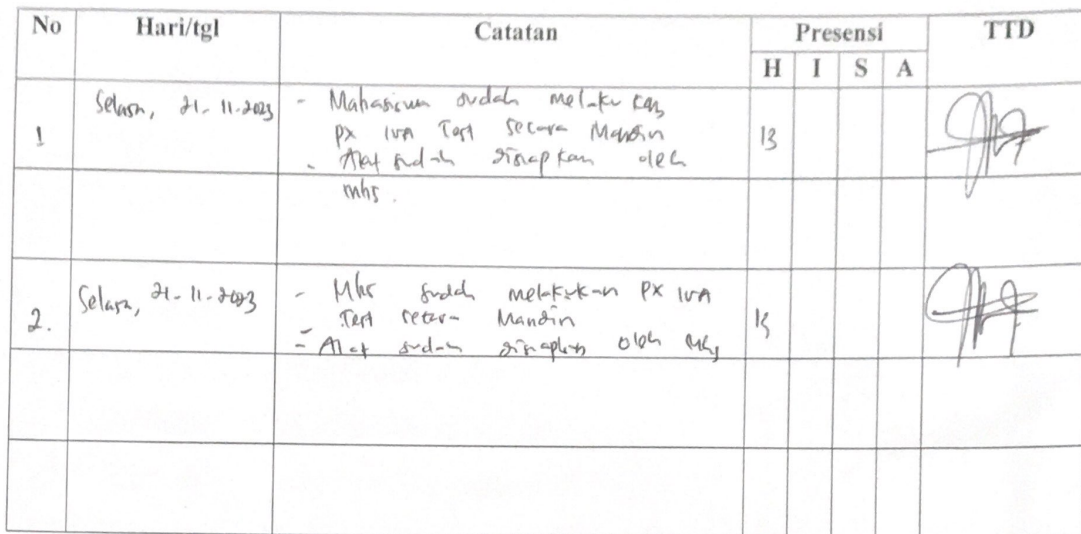 No Hari/tgl Catatan Presensi TTD
H I S A
1 Selasa, 21-11-2023 - Mahasiswa sudah melakukan
px IVA Test secara Mandiri
- Alat sudah disiapkan oleh
mhs.
13
2. Selasa, 21-11-2023 - Mhs sudah melakukan PX IVA
Test secara Mandiri
- Alat sudah disiapkan oleh Mhs